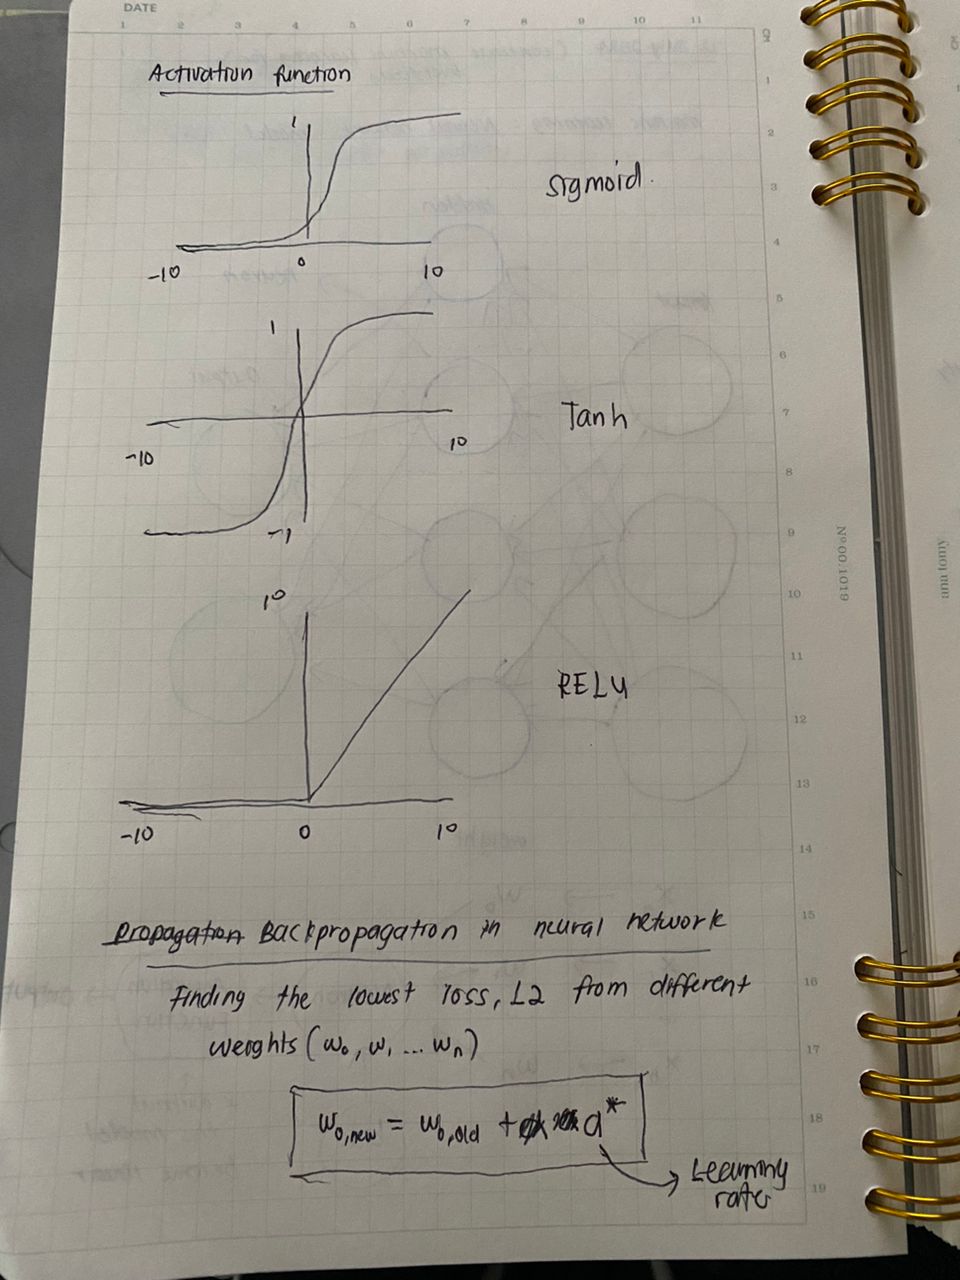 DATE
1 2 3 4 5 6 7 8 9 10 11
Activation function
1
sigmoid.
-10 0 10
1
Tanh
-10 10
-1
10
RELU
-10 0 10
Propagation Backpropagation in neural network
Finding the lowest loss, L2 from different
weights (w₀, w₁ ... wₙ)
w₀,new = w₀,old + a*
Learning
rate
1
2
3
4
5
6
7
8
9
10
11
12
13
14
15
16
17
18
19
Nº00.1019